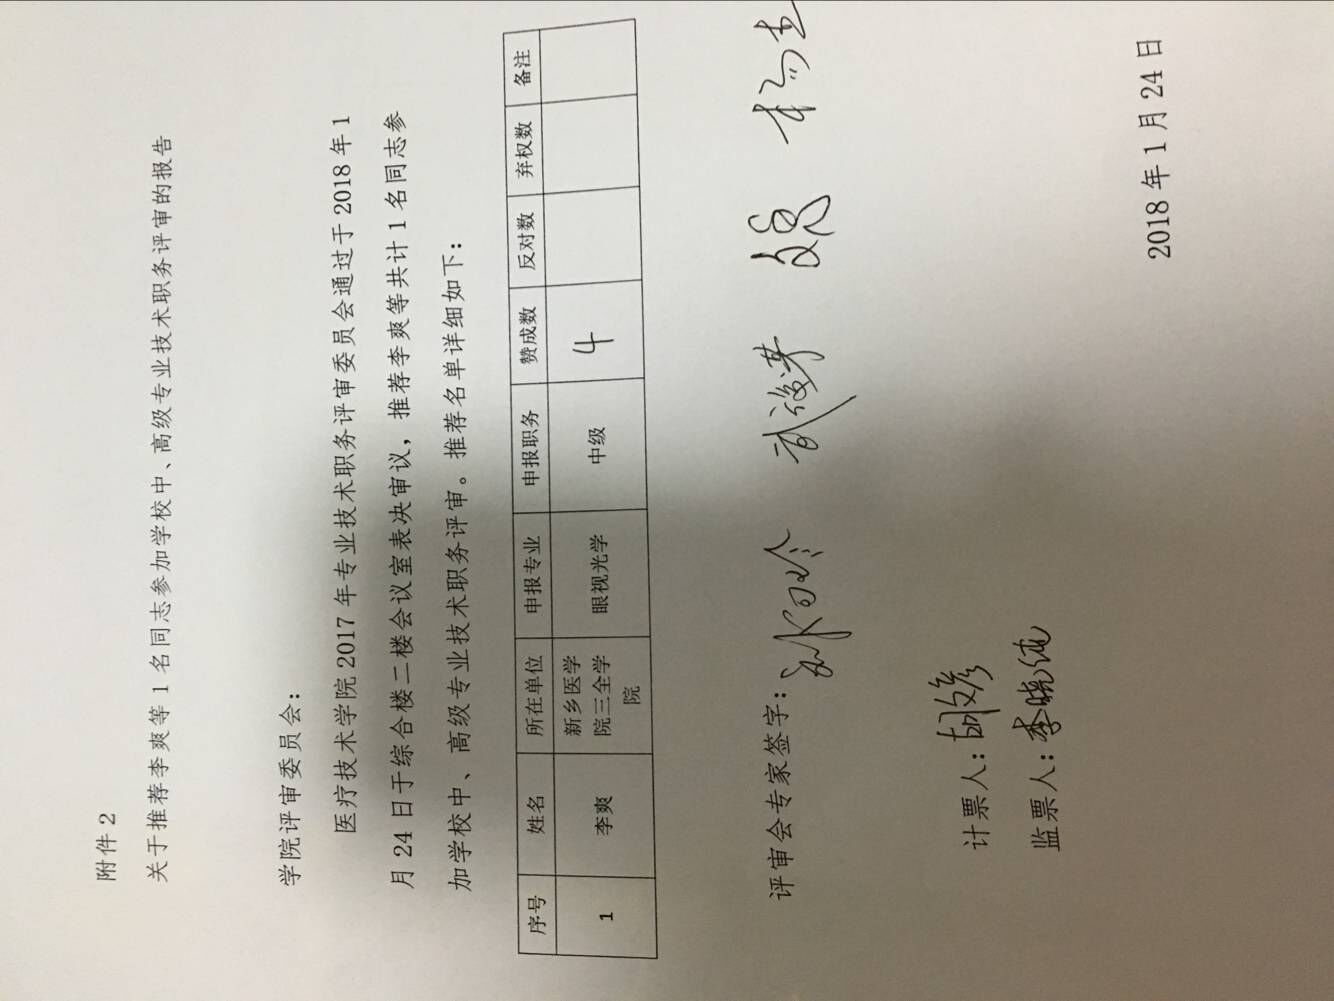 附件 2
关于推荐李爽等 1 名同志参加学校中、高级专业技术职务评审的报告
学院评审委员会：
医疗技术学院 2017 年专业技术职务评审委员会通过于 2018 年 1
月 24 日于综合楼二楼会议室表决审议，推荐李爽等共计 1 名同志参
加学校中、高级专业技术职务评审。推荐名单详细如下：
序号 姓名 所在单位 申报专业 申报职务 赞成数 反对数 弃权数 备注
1 李爽 新乡医学院三全学院 眼视光学 中级 4
评审会专家签字：
计票人：
监票人：李晓纯
2018 年 1 月 24 日